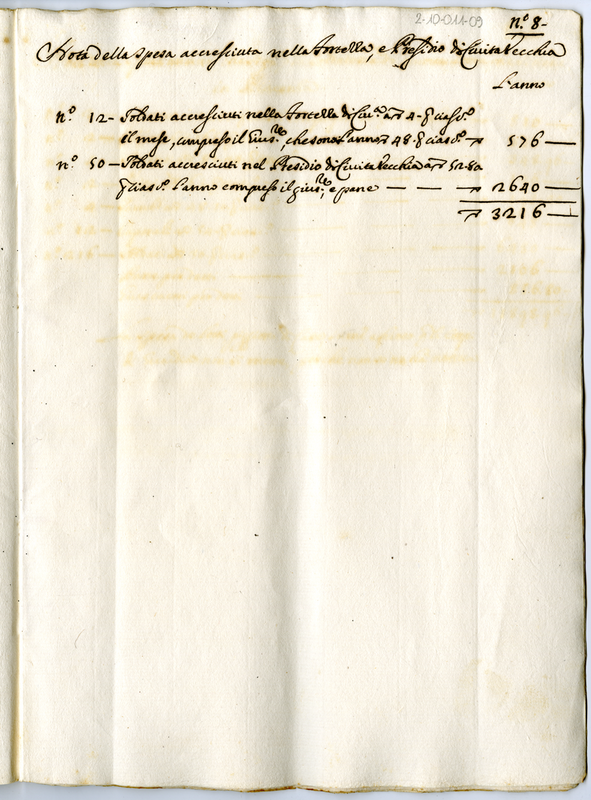 2-10-011-09
n.º 8-
Nota della spesa accresciuta nella Fortezza, e Presidio di Civita Vecchia
L'anno
n.º 12- Soldati accresciuti nella Fortezza di Civ.ª a 4- p ciasc.º
il mese, compreso il che sono l'anno 48- p ciasc.º 576 —
n.º 50 — Soldati accresciuti nel Presidio di Civita Vecchia a 52:80
p ciasc.º l'anno compreso il e pane — — 2640 —
3216 —